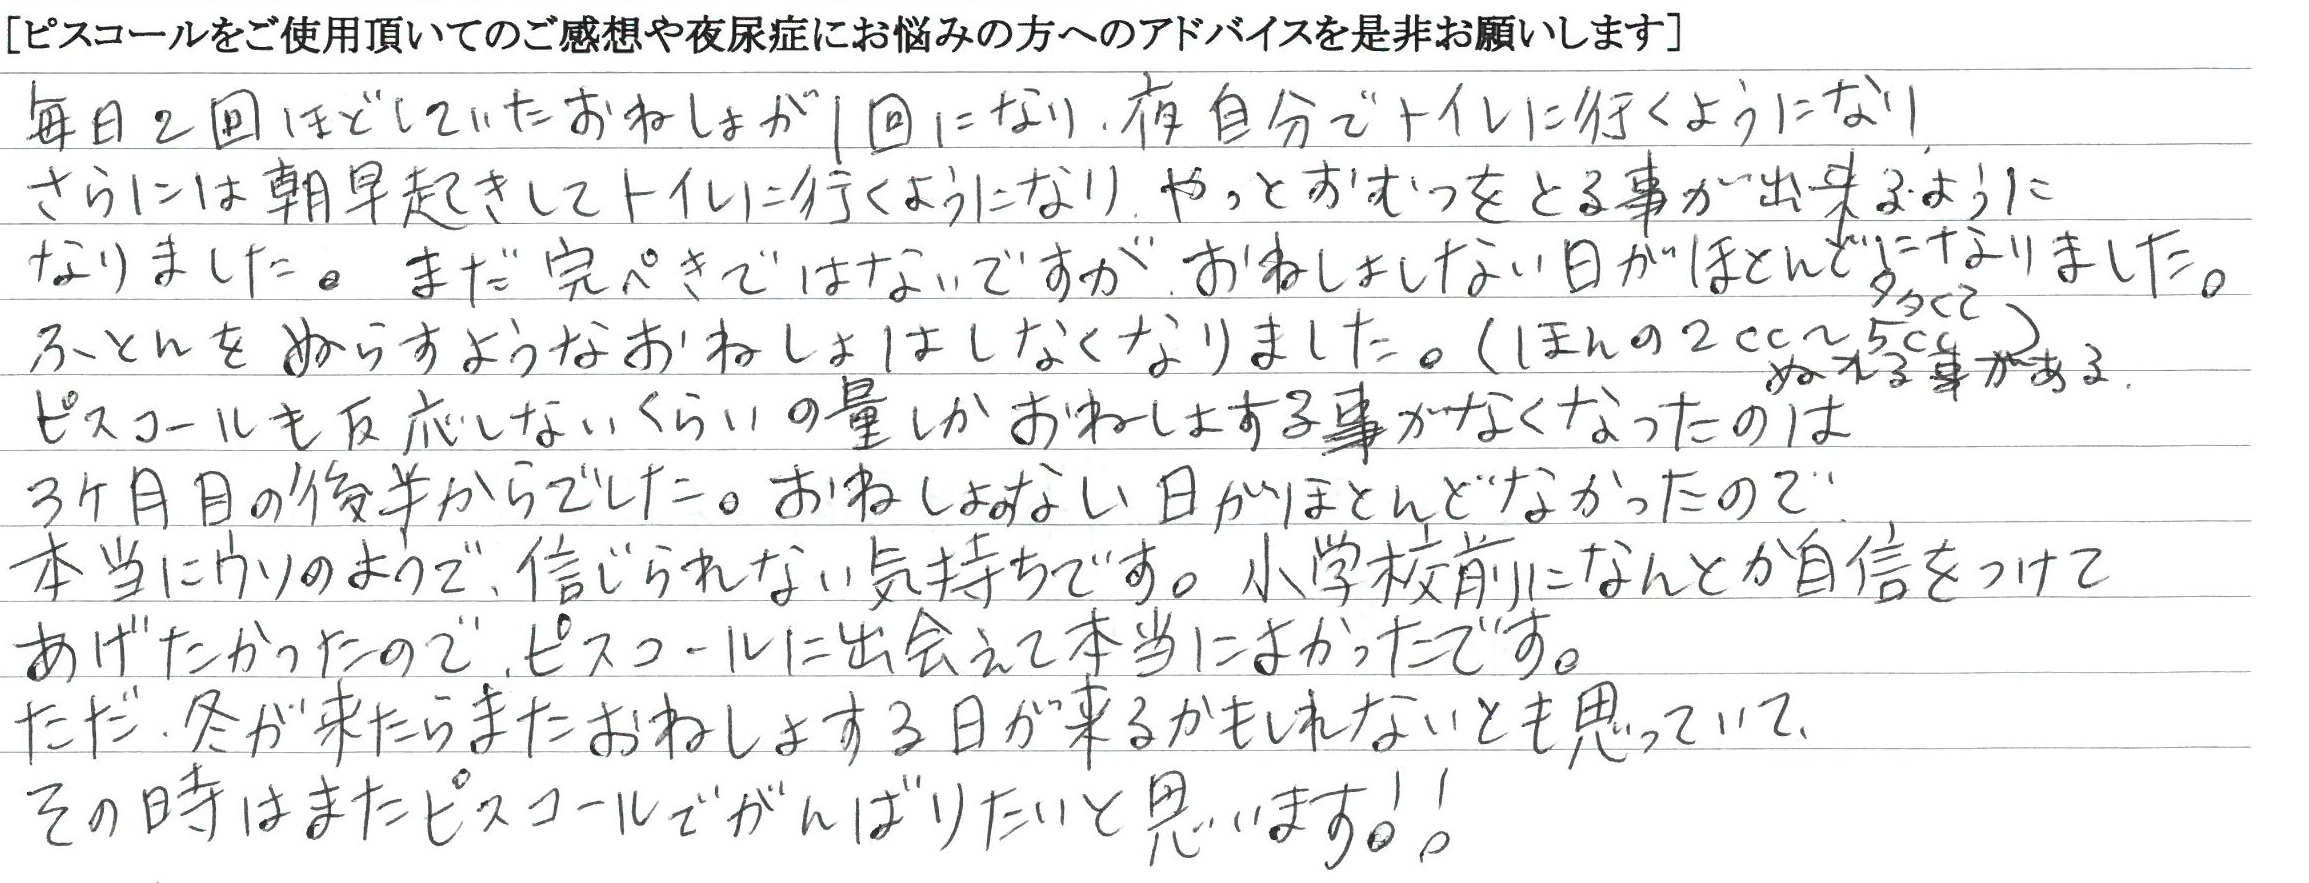 [ピスコールをご使用頂いてのご感想や夜尿症にお悩みの方へのアドバイスを是非お願いします]
毎日2回ほどしていたおねしょが1回になり、夜自分でトイレに行くようになり、
さらには朝早起きしてトイレに行くようになり、やっとおむつをとる事が出来るように
なりました。まだ完ぺきではないですが、おねしょしない日がほとんどになりました。
ふとんをぬらすようなおねしょはしなくなりました。(ほんの2cc〜多くて5cc)
ぬれる事がある.
ピスコールも反応しないくらいの量しかおねしょする事がなくなったのは
3ケ月目の後半からでした。おねしょない日がほとんどなかったので、
本当にウソのようで、信じられない気持ちです。小学校前になんとか自信をつけて
あげたかったので、ピスコールに出会えて本当によかったです。
ただ、冬が来たらまたおねしょする日が来るかもしれないとも思っていて、
その時はまたピスコールでがんばりたいと思います!!